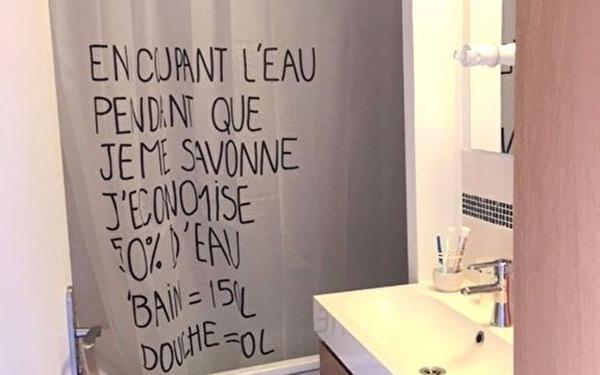 EN COUPANT L'EAU
PENDANT QUE
JE ME SAVONNE
J'ECONOMISE
50% D'EAU
1 BAIN = 150L
DOUCHE = 0L